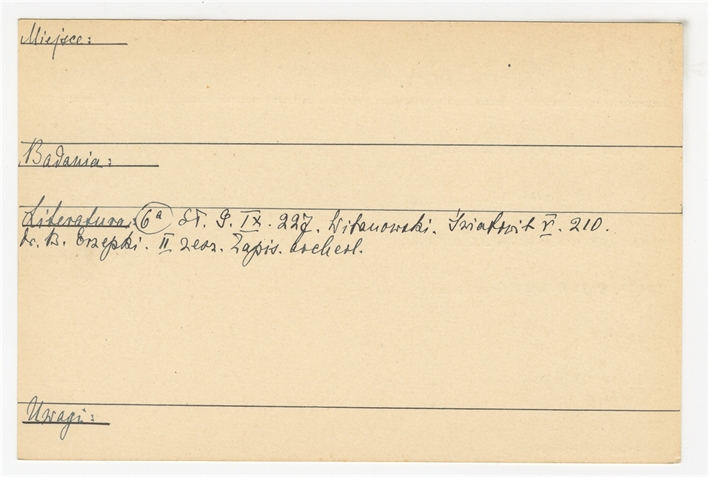 Miejsce:
Badania:
Literatura: 6a St. G. IX. 227. Witanowski. Światowit V. 210.
Dr. B. Erzepki. II zesz. Zapis. archeol.
Uwagi: